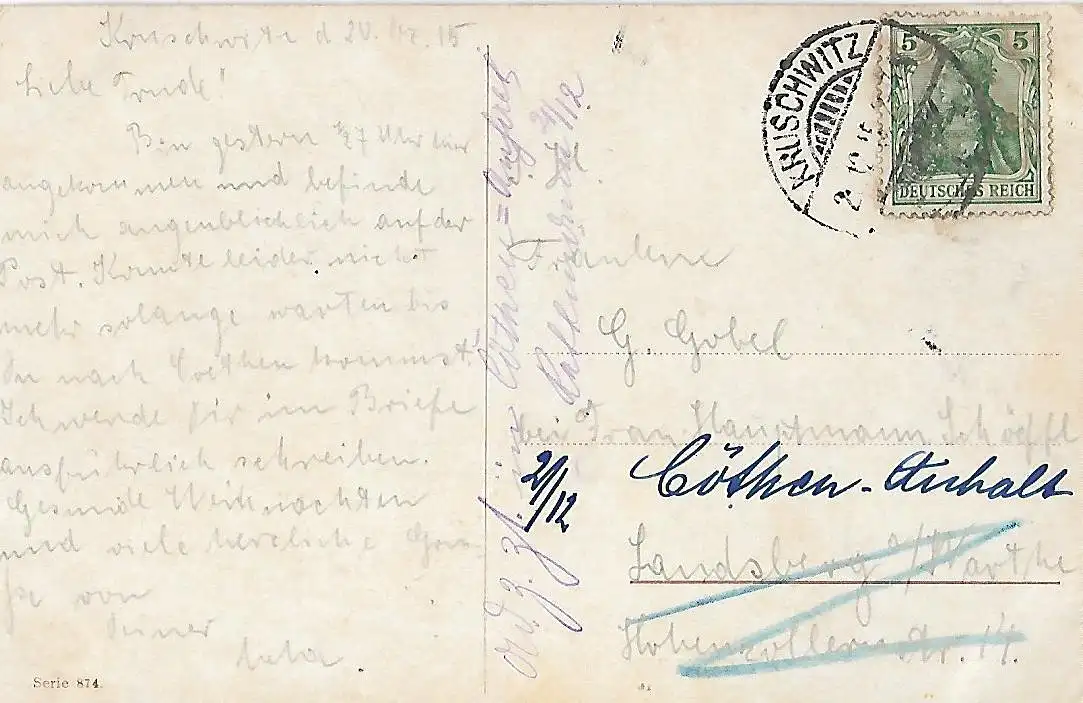 Kruschwitz d 20. 12. 15.
Liebe Trude!
Bin gestern ½7 Uhr hier
angekommen und befinde
mich augenblicklich auf der
Post. Konnte leider nicht
mehr solange warten bis
Du nach Coethen kommst.
Ich werde Dir im Briefe
ausführlich schreiben.
Gesunde Weihnachten
und viele herzliche Grüs-
se von
Deiner
Serie 874.
KRUSCHWITZ
5 5
DEUTSCHES REICH
Fräulein
G. Gobel
bei Frau Hauptmann Schöpfl
Cöthen-Anhalt
Landsberg a/Warthe
Hohenzollernstr. 14.
21/12
z. Zt. in Cöthen=Anhalt
21/12